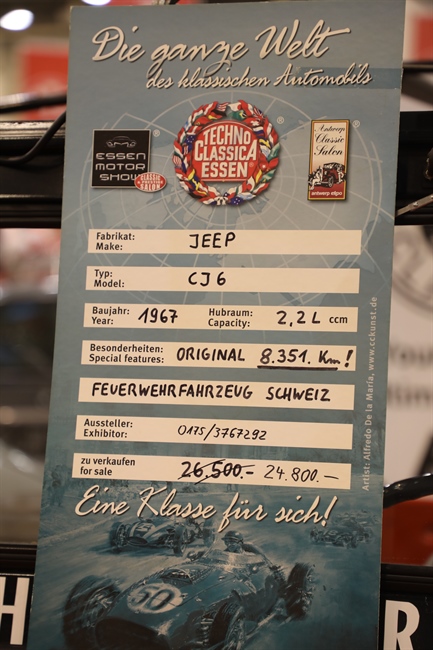 Die ganze Welt
des klassischen Automobils
ESSEN
MOTOR
SHOW
CLASSIC
SALON
TECHNO
CLASSICA
ESSEN
Antwerp
Classic
Salon
antwerp expo
Fabrikat:
Make: JEEP
Typ:
Model: CJ6
Baujahr:
Year: 1967 Hubraum:
Capacity: 2,2 L ccm
Besonderheiten:
Special features: ORIGINAL 8.351. Km!
FEUERWEHRFAHRZEUG SCHWEIZ
Aussteller:
Exhibitor: 0175/3767292
zu verkaufen
for sale 26.500.- 24.800.-
Eine Klasse für sich!
50
Artist: Alfredo De la Maria, www.cckunst.de
H
R